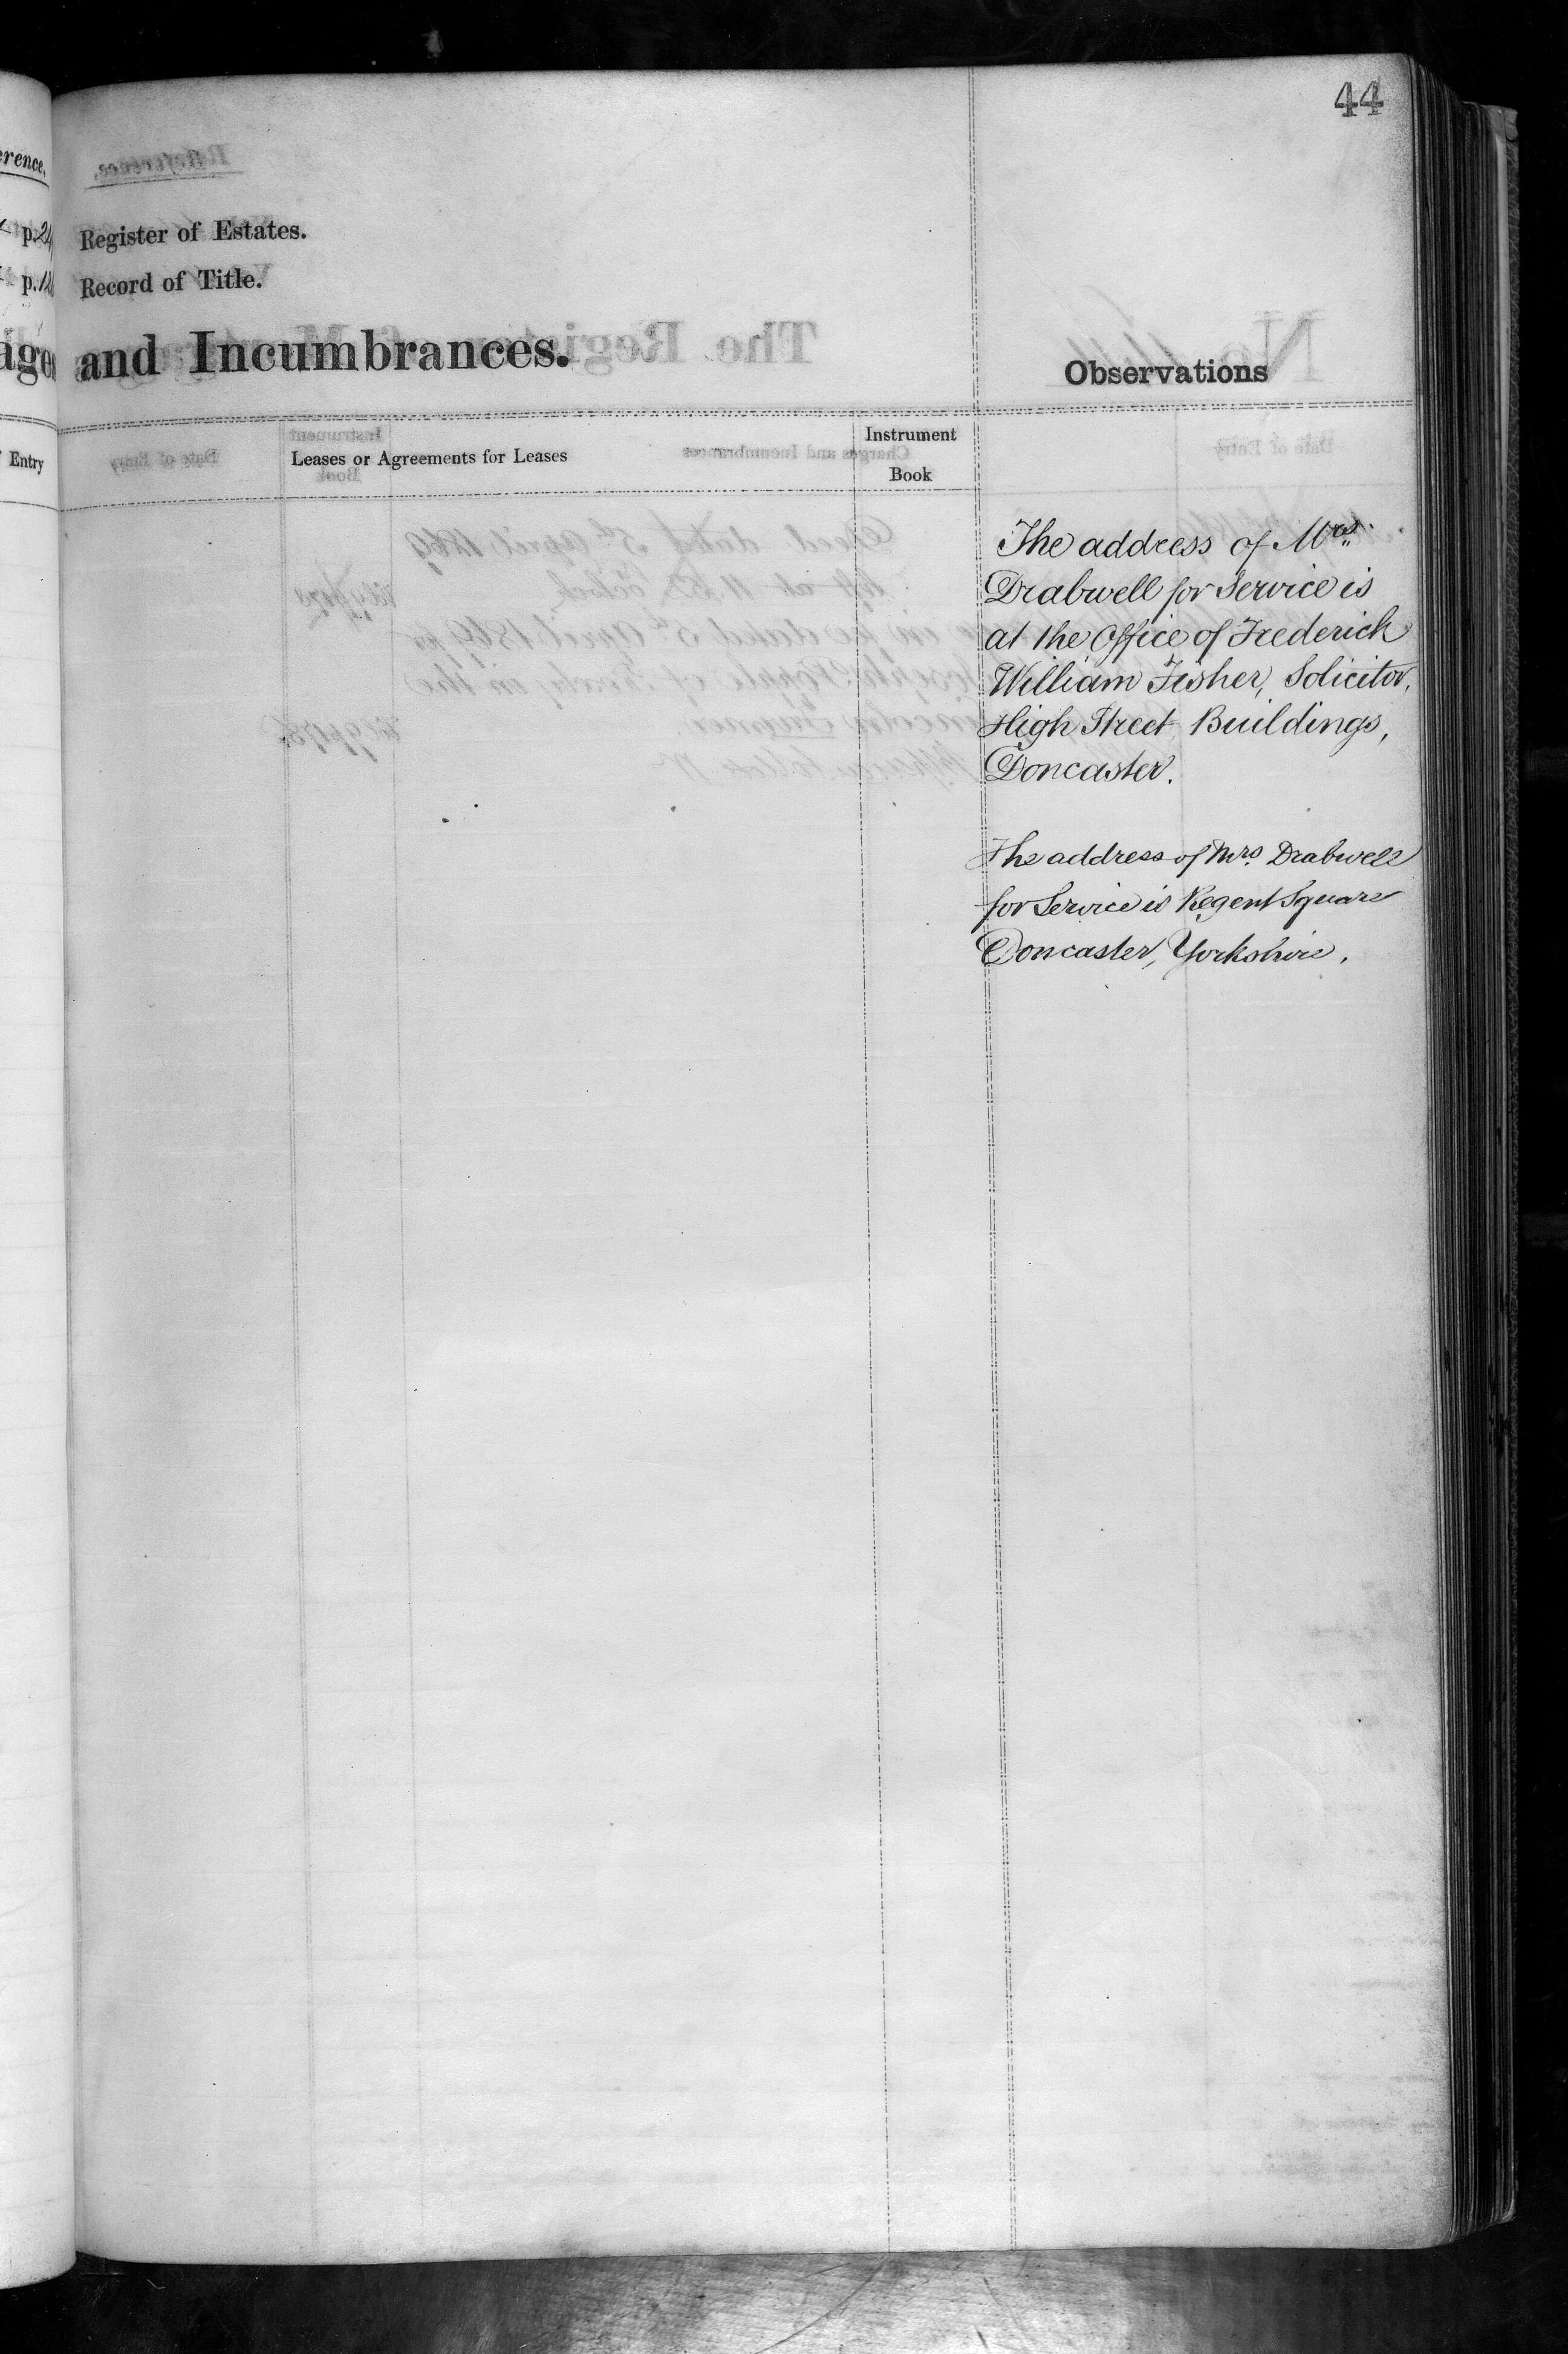 44
erence,
p. 24
p. 12
Register of Estates.
Record of Title.
and Incumbrances.
Observations
Entry
Leases or Agreements for Leases
Instrument
Book
The address of Mrs.
Drabwell for Service is
at the Office of Frederick
William Fisher, Solicitor,
High Street Buildings,
Doncaster.
The address of Mrs. Drabwell
for Service is Regent Square
Doncaster, Yorkshire.